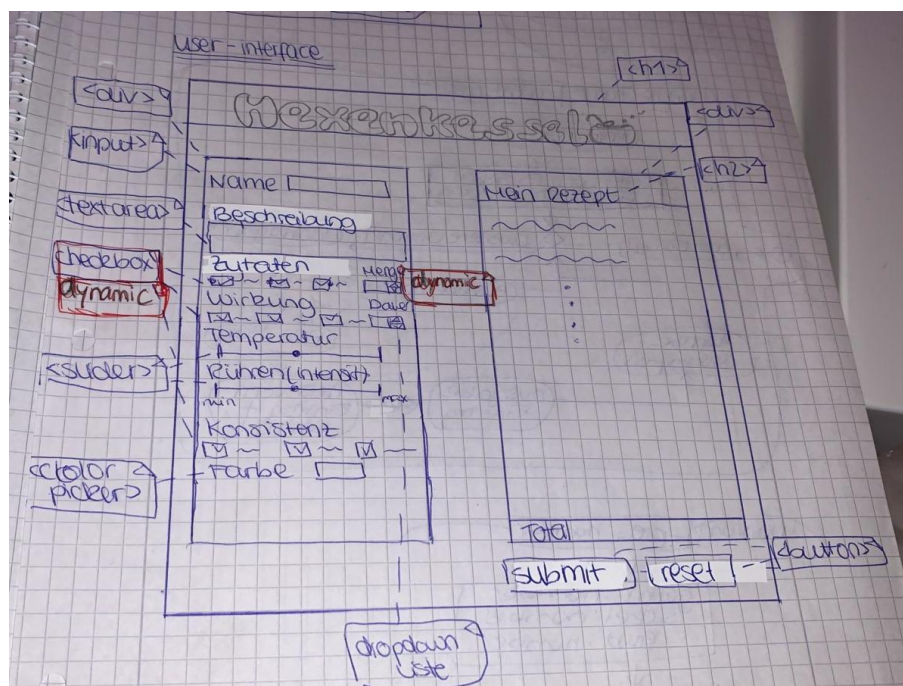 user-interface
<h1>
<div>
Hexenkessel
<div>
<input>
<h2>
Name
Mein Rezept
<textarea>
Beschreibung
checkbox
dynamic
Zutaten
Menge
dynamic
Wirkung
Dauer
Temperatur
<slider>
Rühren(intensit)
min
max
Konsistenz
<color
picker>
Farbe
Total
submit
reset
<button>
dropdown
liste